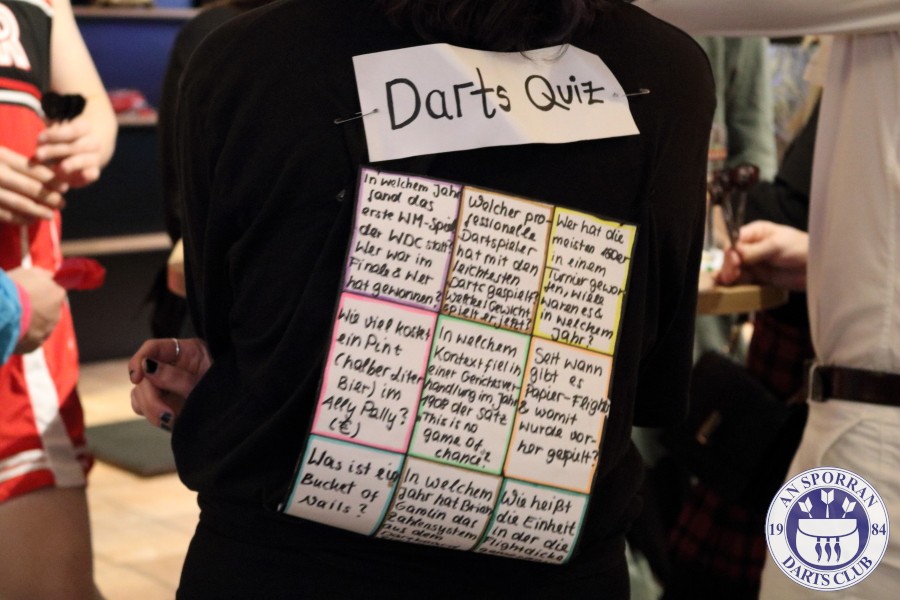 Darts Quiz
In welchem Jahr
fand das
erste WM-Spiel
der WDC statt?
Wer war im
Finale & wer
hat gewonnen?
Welcher pro-
fessionelle
Dartspieler
hat mit den
leichtesten
Darts gespielt?
Welches Gewicht
spielt er jetzt?
Wer hat die
meisten 180er
in einem
Turnier gewor-
fen, wie viele
waren es &
in welchem
Jahr?
Wie viel kostet
ein Pint
(halber Liter
Bier) im
Ally Pally?
(€)
In welchem
Kontext fiel in
einer Gerichtsver-
handlung im Jahr
1908 der Satz
This is no
game of
chance?
Seit wann
gibt es
Papier-Flights
& womit
wurde vor-
her gespielt?
Was ist ein
Bucket of
Nails?
In welchem
Jahr hat Brian
Gamlin das
Zahlensystem
aus dem
Wie heißt
die Einheit
in der die
Flightdicke
AN SPORRAN
1984
DARTS CLUB